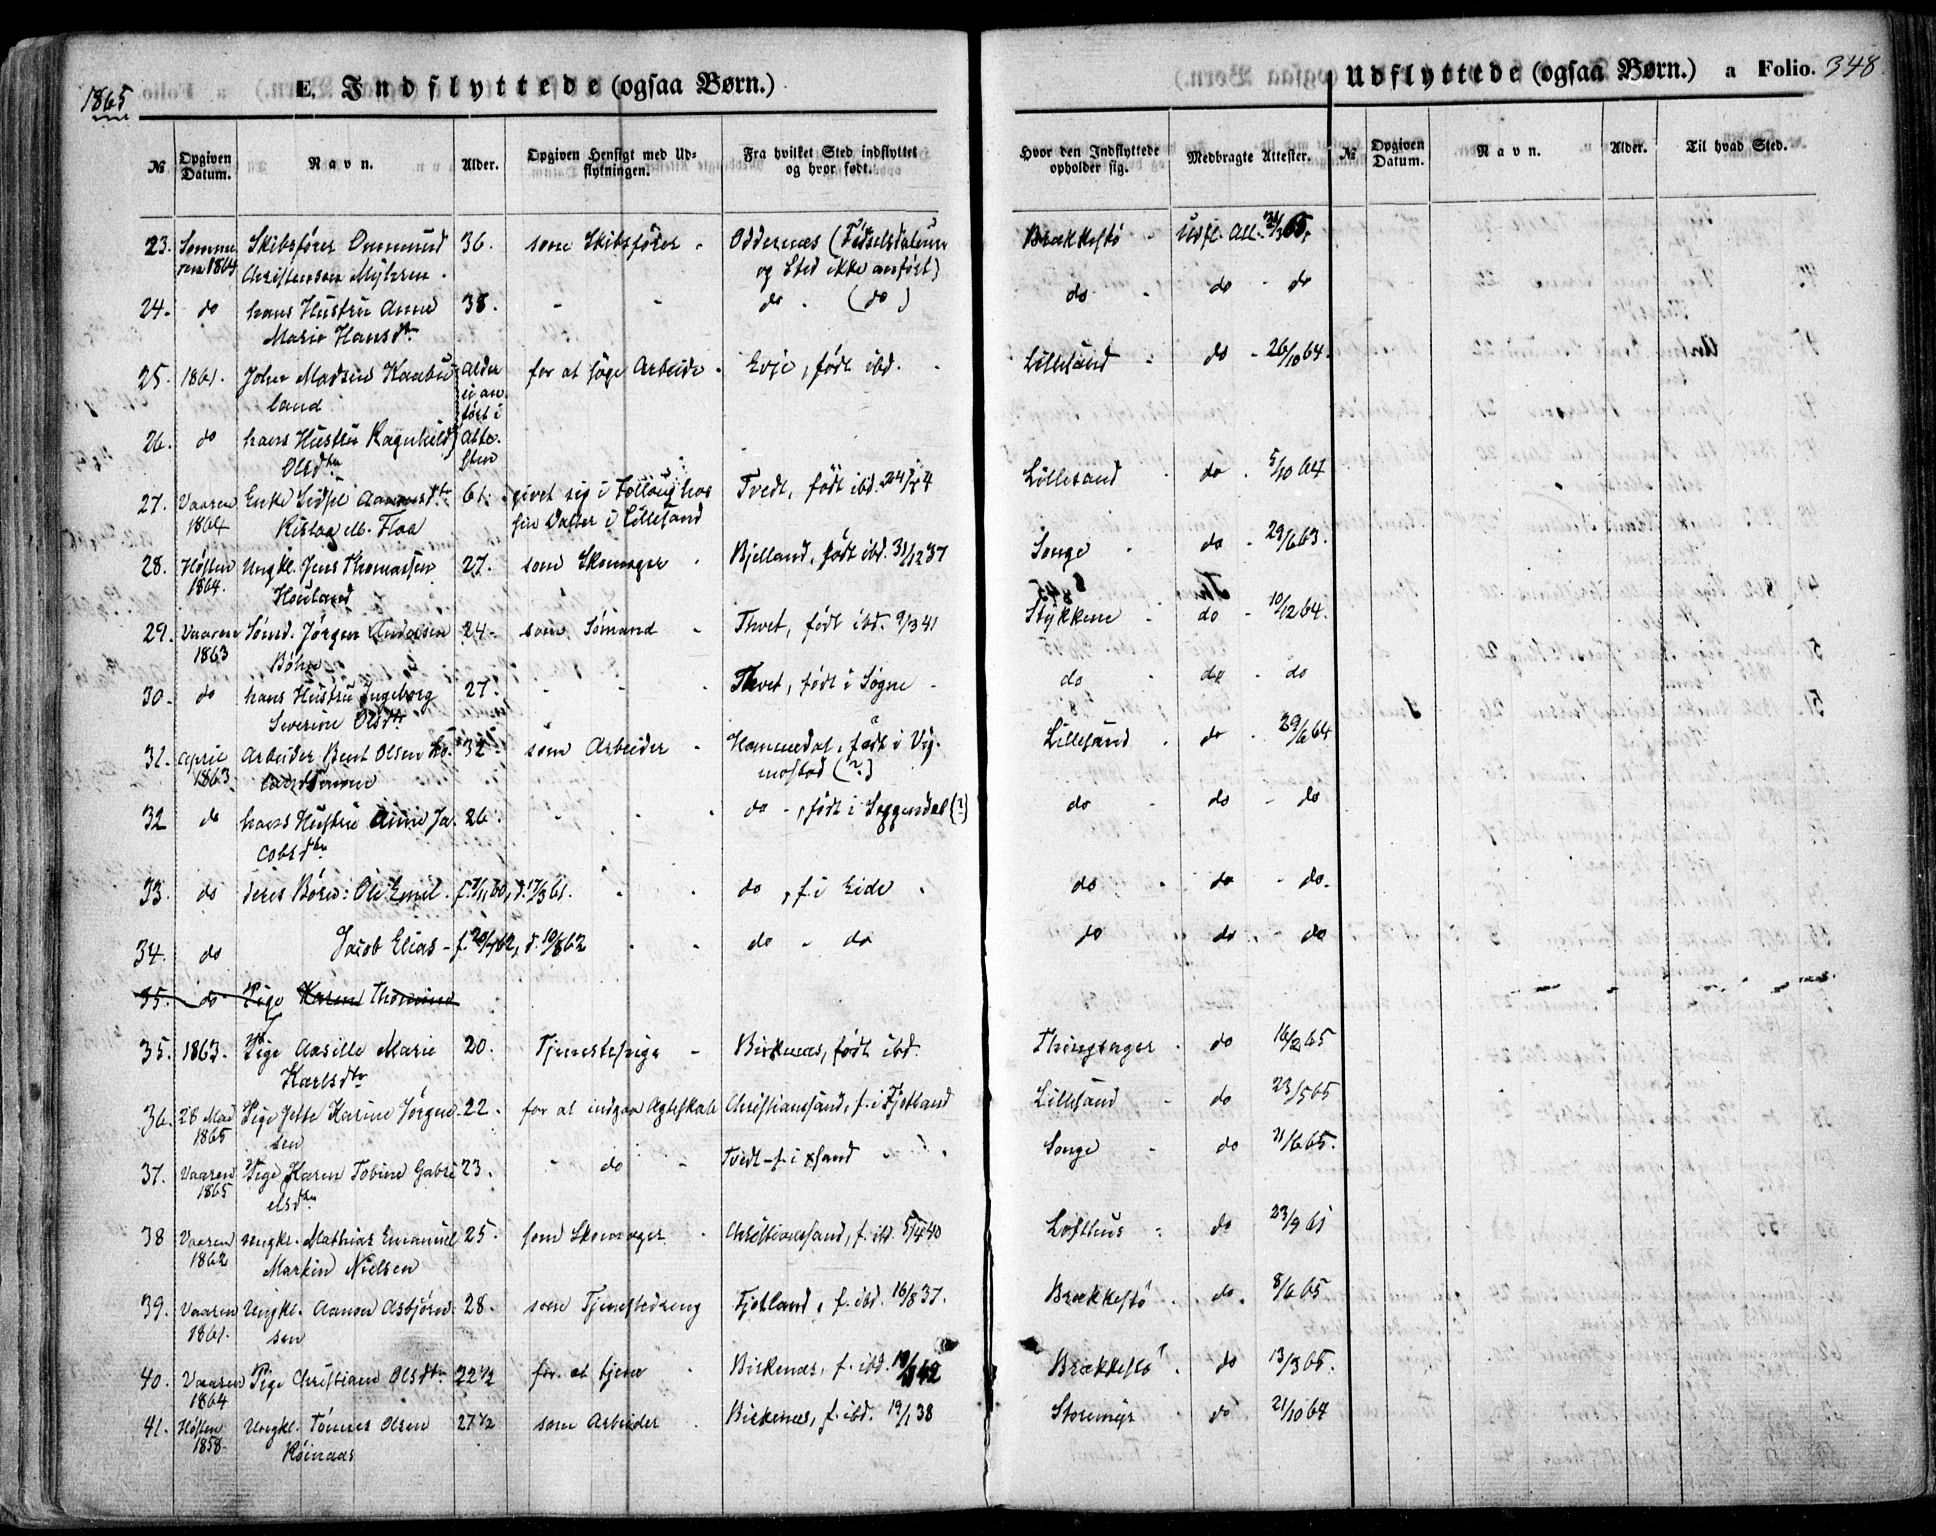 1865
E. Indflyttede (ogsaa Børn.)
Udflyttede (ogsaa Børn.) a Folio. 348
№ Opgiven Datum. Navn. Alder. Opgiven Hensigt med Udflytningen. Fra hvilket Sted indflyttet og hvor født. Hvor den Indflyttede opholder sig. Medbragte Attester. № Opgiven Datum. Navn. Alder. Til hvad Sted.
23. Somme Skibsfører Ommund 36. som Skibsfører Oddernæs (Fødselsdatum Brækkestø Udfl. Att. 65.
ren 1864 Christensen Myhren og Sted ikke anført)
24. do hans Hustru Anne 38. do (do) do do do
Marie Hansdtr
25. 1861. John Madsen Kaabu Alder for at søge Arbeide Evje, født ibd. Lillesand do 26/10 64.
land ei an
ført i
26. do hans Hustru Ragnhild Atte Lillesand do 5/10 64
Olsdtr sten
27. Vaaren Enke Sidsel Aanonsdtr 61. givet sig i Follaug hos Tvedt, født ibd. Songe do 29/6 63.
1864 Flaa sin Datter i Lillesand
28. Høsten Ungkl. Jens Thomassen 27. som Skomager Bjelland, født ibd. 31/12 37 Stykkene do 10/12 64.
1864. Houland
29. Vaaren Sømd. Jørgen Andersen 24 som Sømand Thvet, født ibd. 9/3 41 do do do
1863 Bøhn
30. do hans Hustru Ingeborg 27. Thvet, født i Søgne
Severine Olsdtr
31. April Arbeider Bent Olsen 32 som Arbeider Hommedal, født i Vig Lillesand do 29/6 64
1863. mostad (?)
32 do hans Hustru Anne Ja 26. do, født i Soggendal (?) do do do
cobsdtr
33. do deres Børn: Ole Emil f. 7/11 60, d. 17/3 61. do, f. i Eide do do do.
34. do Jacob Elias f. 20/7 62, d. 10/8 62 do do do do do
35. do Pige Karen Thomine
35. 1863. Pige Aasille Marie 20. Tjenestepige Birkenæs, født ibd. Thingsager do 16/2 65
Karlsdtr
36. 28 Mai Pige Jette Karine Jørgen 22. for at indgaa Ægteskab Christianssand, f. i Fjotland Lillesand do 23/5 65
1865 sen
37. Vaaren Pige Karen Tobine Gabri 23. do Tvedt f. i Xsand Songe do 21/6 65.
1865 elsdtr
38 Vaaren Ungkl. Mathias Emanuel 25. som Skomager Christianssand, f. ibd. 5/4 40 Lofthus do 23/9 61
1862 Martin Nielsen
39. Vaaren Ungkl. Aanon Asbjørn 28. som Tjenestedreng Fjotland, f. ibd. 16/8 37. Brækkestø do. 8/6 65
1861. sen
40. Vaaren Pige Christiane Olsdtr 22 1/2 for at tjene Birkenæs, f. ibd. 42 Brækkestø do 13/3 65.
1864
41. Høsten Ungkl. Tønnes Olsen 27 1/2 som Arbeider Birkenæs, f. ibd. 19/1 38 Storemyr do 21/10 64
1858. Røinaas